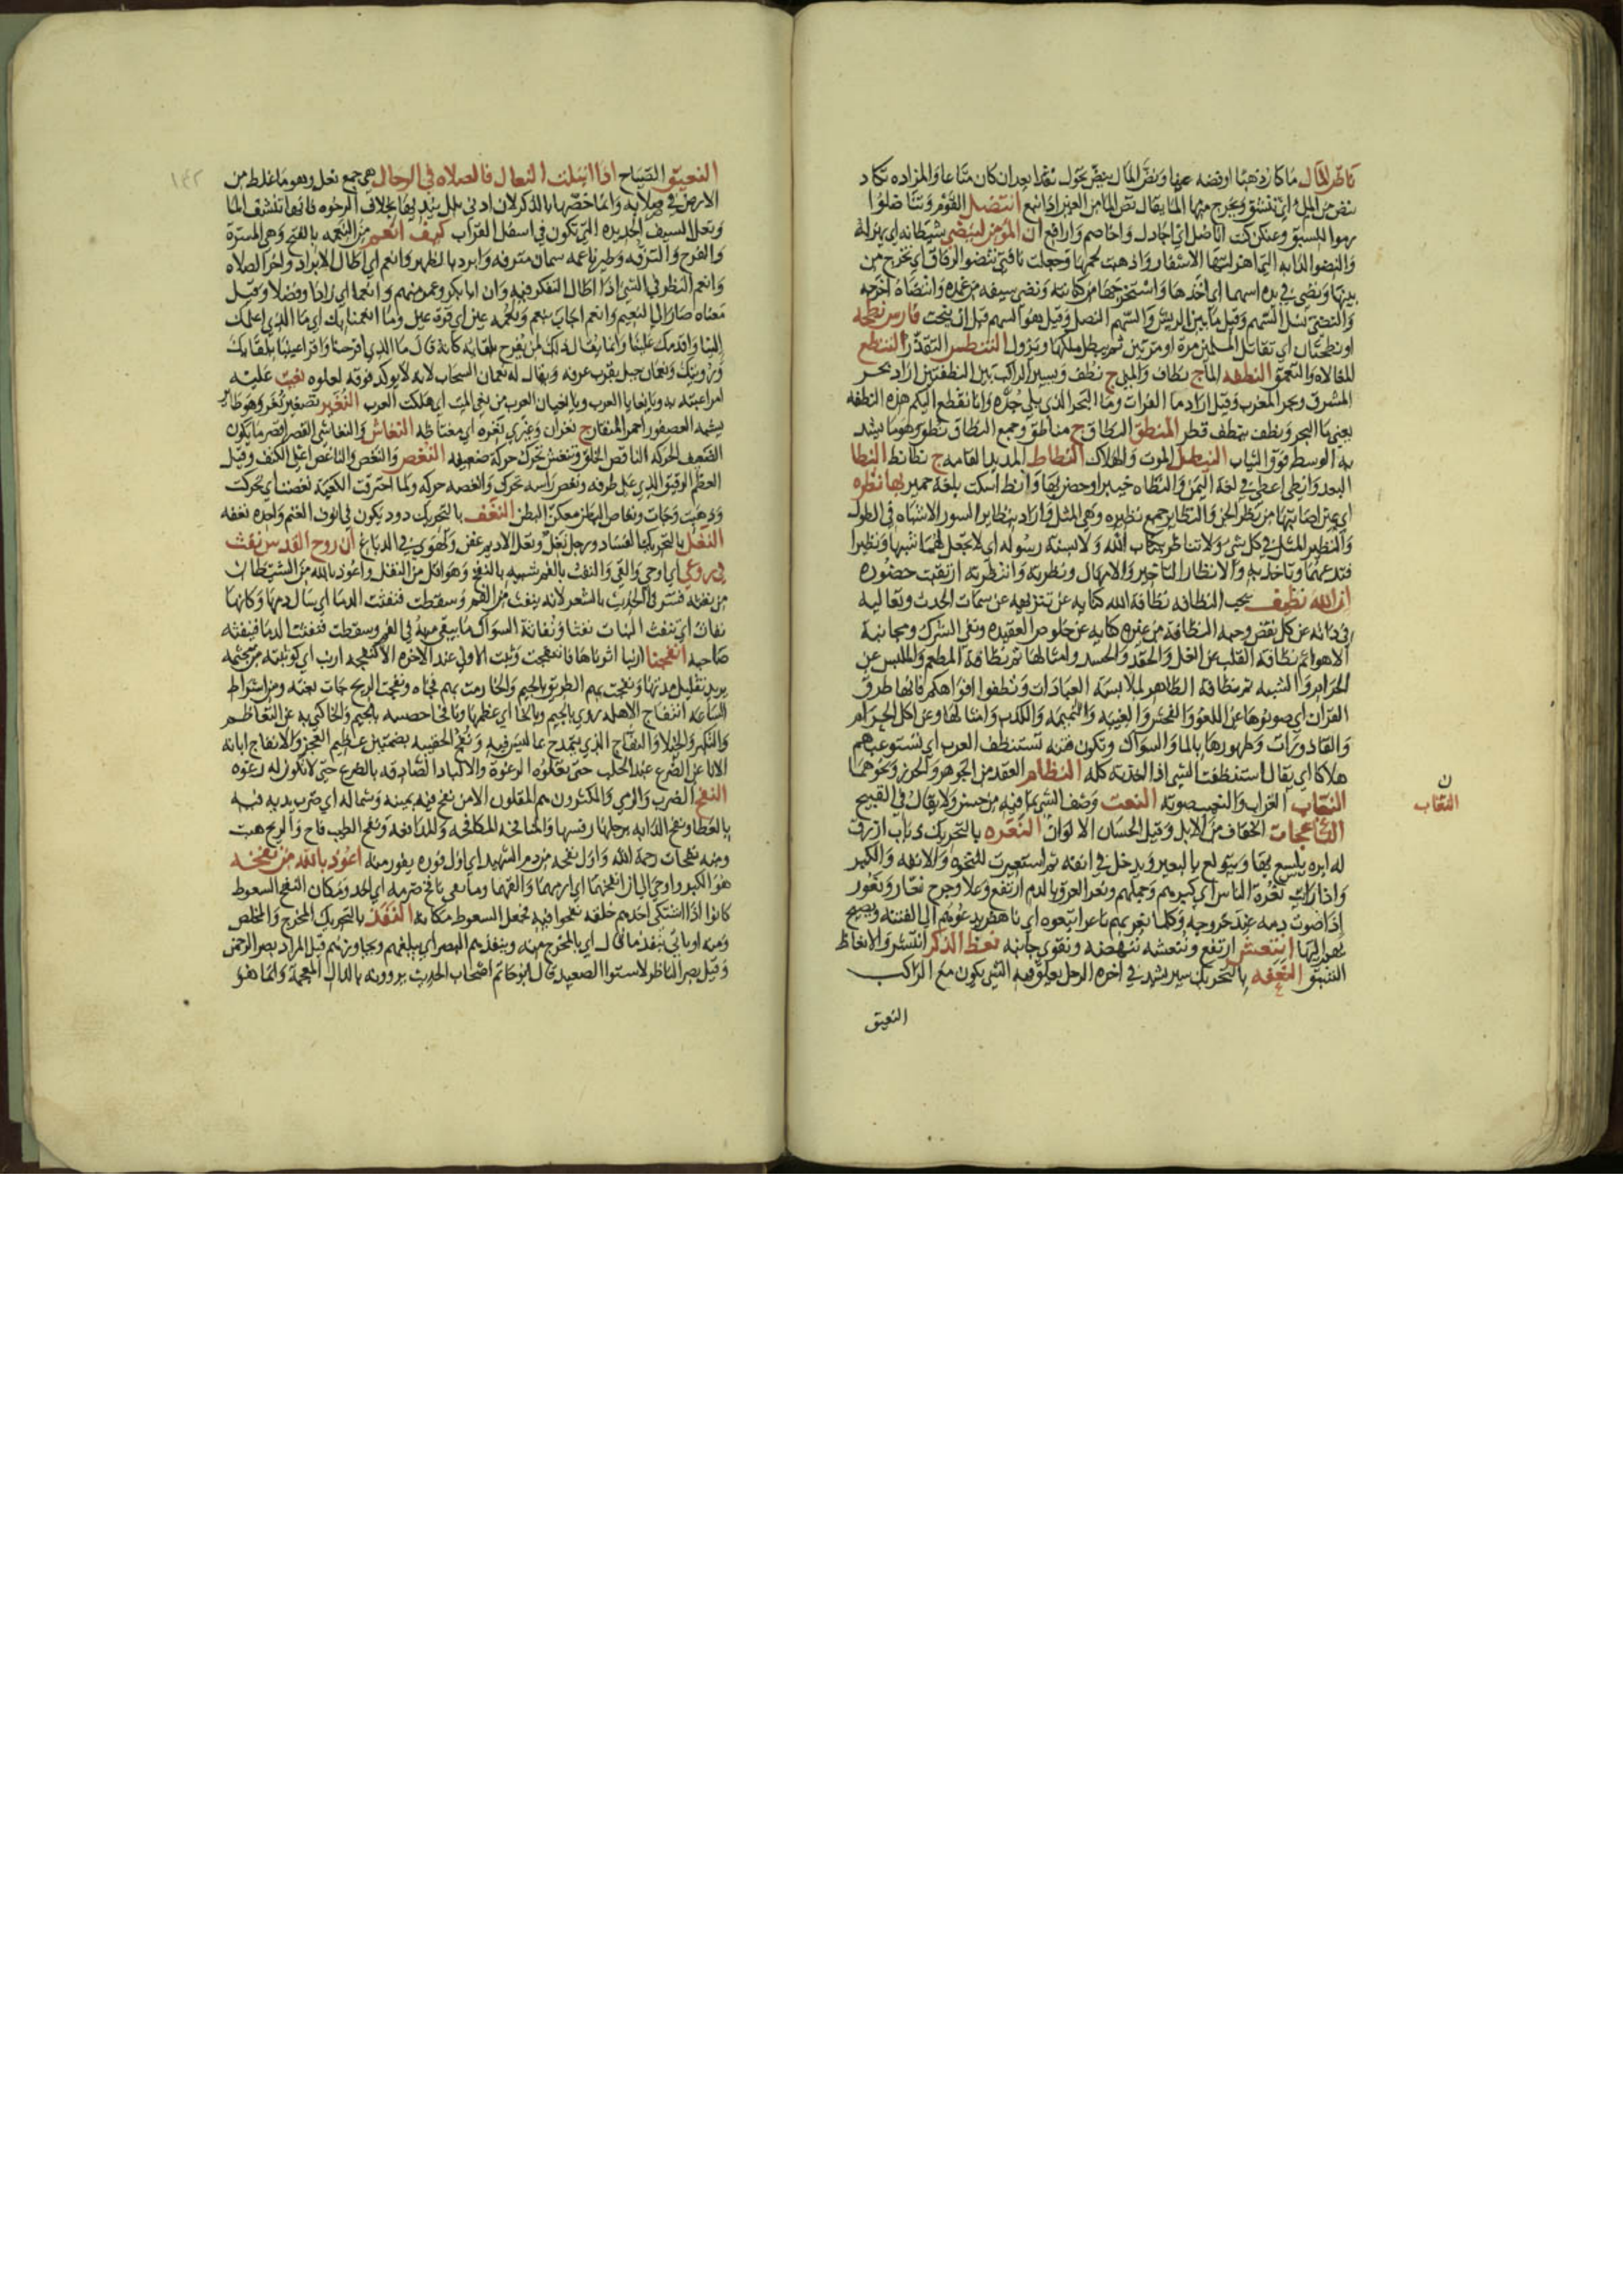 ناض المال ما كان ذهبا او فضه عينا ونض المال ينض تحول نقدا بعد ان كان متاعا والمزاده تكاد
تنض من الملء اي تنشق ويخرج منها الماء يقال نض الماء من العين اذا نبع انتضل القوم وتناضلوا
رموا للسبق وعنكن كنت اناضل اي اجادل واخاصم وارافع ان المؤمن لينضي شيطانه اي يهزله
والنضو الدابه التي اهزلتها الاسفار واذهبت لحمها وجعلت ناقتي تنضو الرفاق اي تخرج من
بينها ونضى في يده اسهما اي اخذها واستخرجها من كنانته ونضى سيفه من غمده وانتضاه اخرجه
والنضي نصل السهم وقيل ما بين الريش والسهم النصل وقيل هو السهم قبل ان ينحت فارس نطحه
او نطحتان اي تقاتل المسلمين مرة او مرتين ثم يبطل ملكها ويزول التنطس التقذر التنطع
المغالاه والتعمق النطفه الماء ج نطاف والمبل ج نطف ويسير الراكب بين النطفتين اراد بحر
المشرق وبحر المغرب وقيل اراد ما الفرات وما البحر الذي يلي جده وانا نقطع اليكم هذه النطفه
يعني ما البحر ونطف ينطف قطر المنطق النطاق ج مناطق وجمع النطاق نطق وهو ما يشد
به الوسط فوق الثياب النيطل الموت والهلاك النطاط المديد القامه ج نطانط النطا
البعد وانطى اعطى في لغة اليمن والنطاه خيبر او حصن بها وانط اسكت بلغة حمير بها نظره
اي عين اصابتها من نظر الجن والنظاير جمع نظيره وهي المثل واراد بنظاير السور الاشتباه في الطول
والنظير المثل في كل شي ولا تناظر بكتاب الله ولا بسنة رسوله اي لا تجعل لهما شبها ونظيرا
فتدعهما وتاخذ به والانظار التاخير والامهال ونظرته وانتظرته ارتقبت حضوره
ان الله نظيف يحب النظافه نظافة الله كنايه عن تنزيهه عن سمات الحدث وتعاليه
في ذاته عن كل نقص وحبه النظافة من غيره كنايه عن خلوص العقيده ونفي الشرك ومجانبة
الاهوا ثم نظافة القلب عن الغل والحقد والحسد وامثالها ثم نظافة المطعم والملبس عن
الحرام والشبه ثم نظافة الظاهر لملابسة العبادات ونظفوا افواهكم فانها طرق
القران اي صونوها عن اللغو والفحش والغيبه والنميمه والكذب وامثالها وعن اكل الحرام
والقاذورات وطهورها بالما والسواك وتكون فتنه تستنظف العرب اي تستوعبهم
هلاكا اي يقال استنظفت الشي اذا اخذته كله النظام العقد من الجوهر والخرز ونحوهما
النعاب الغراب والنعيب صوته النعت وصف الشي بما فيه من حسن ولا يقال في القبيح
الناعجات الخفاف من الابل وقيل الحسان الالوان النعره بالتحريك ذباب ازرق
له ابره يلسع بها ويتولع بالبعير ويدخل في انفه ثم استعيرت للنخوه والانفه والكبر
واذا رايت نعرة الناس اي كبرهم وجهلهم ونعر العرق بالدم ارتفع وعلا وجرح نعار ونعور
اذا صوت دمه عند خروجه وكلما نعر بهم ناعر اتبعوه اي ناهض يدعوهم الى الفتنه ويصيح
بهم اليها انتعش ارتفع ونعشه نهضه ونقوي جانبه نعظ الذكر انتشر والانعاظ
الشبق النعفه بالتحريك سير يشد في اخره الرحل يعلق فيه الشي يكون مع الراكب
النعيق
ن
النعاب
١٤٢
النعيق الصياح اذا ابتلت النعال فالصلاه في الرحال هي جمع نعل وهو ما غلظ من
الارض في صلابه وانما خصها بالذكر لان ادنى بلل ينديها بخلاف الرخوه فانها تنشف الما
ونعل السيف الحديده التي تكون في اسفل القراب كيف انعم من النعمه بالفتح وهي المسرة
والفرح والترفه وطير ناعمه سمان مترفه وابرد بالظهر وانعم اي اطال الابراد واخر الصلاه
وانعم النظر في الشي اذا اطال التفكر فيه وان ابا بكر وعمر منهم وانعما اي زادا وفضلا وقيل
معناه صارا الى النعيم وانعم اجاب بنعم ونعمه عين اي قرة عين وما انعمنا بك اي ما الذي اعملك
الينا واقدمك علينا وانما يقال ذلك لمن يفرح بلقايه كانه قال ما الذي افرحنا واقر اعيننا بلقايك
ورويتك ونعمان جبل بقرب عرفه ويقال له نعمان السحاب لانه لا يركد فوقه لعلوه نعيت عليه
امرا عبته به ويا نعايا العرب ويا نعيان العرب من نعي الميت اي هلكت العرب النغير تصغير نغر وهو طاير
يشبه العصفور احمر المنقار ج نغران وغيري نغره اي مغتاظه النغاش والنغاشي القصير اقصر ما يكون
الضعيف الحركه الناقص الخلق وتنغش تحرك حركة ضعيفه النغض والنغض والناغض اعلى الكتف وقيل
العظم الرقيق الذي على طرفه ونغض راسه تحرك وانغضه حركه ولما احترقت الكعبة نغضت اي تحركت
ووهت وجات ونغاض البهاز معكن البطن النغف بالتحريك دود يكون في انوف الغنم واحده نغفه
النغل بالتحريك الفساد ورجل نغل ونغل الاديم عفن وتهوى في الدباغ ان روح القدس نفث
في روعي اي اوحى والقى والنفث بالفم شبيه بالنفخ وهو اقل من التفل واعوذ بالله من الشيطان
من نفثه فسر في الحديث بالشعر لانه ينفث من الفم وسقطت فنفثت الدما اي سال دمها وكانها
نفاث اي تنفث البنات نفثا ونفاثة السواك ما يبقى منه في الفم وسقطت فنفثت الدما فينفثه
صاحبه انفجنا ارنبا اثرناها فانفجت وثبت الاولى عند الاخره الا كنفجه ارنب اي كوثبته من مجثمه
يريد تقليل مدتها ونفجت بهم الطريق بالجيم والخا رمت بهم فجاه ونفجت الريح جات بغتة ومن اشراط
الساعة انتفاج الاهله روي بالجيم وبالخا اي عظمها ونافجا حضنيه بالجيم والخا كني به عن التعاظم
والتكبر والخيلا والنفاج الذي يتمدح بما ليس فيه ونفج الحقيبه بضمتين عظيم العجز والانفاج ابانة
الانا عن الضرع عند الحلب حتى تعلوه الرغوة والالباد الصاقه بالضرع حتى لا تكون له رغوه
النفح الضرب والرمي والمكثرون هم المقلون الا من نفح فيه بيمينه وشماله اي ضرب يديه فيه
بالعطا ونفح الدابه برجلها رفسها والمنافحه المكافحه والمدافعه ونفح الطيب فاح والريح هبت
ومنه نفحات رحمة الله واول نفحه من دم الشهيد اي اول فوره يفور منه اعوذ بالله من نفخه
هو الكبر واوحي الي ان انفخهما اي ارمهما والقهما وما بقي نافخ ضرمه اي احد ومكان النفخ السعوط
كانوا اذا اشتكى احدهم حلقه نفخوا فيه فجعل السعوط مكانه النفذ بالتحريك المخرج والمخلص
ومنه او ياتي بنفذ ما قال اي بالمخرج منه وينفذهم البصر اي يبلغهم ويجاوزهم قيل المراد بصر الرحمن
وقيل بصر الناظر لاستوا الصعيد قال ابو حاتم اصحاب الحديث يروونه بالذال المعجمة وانما هو